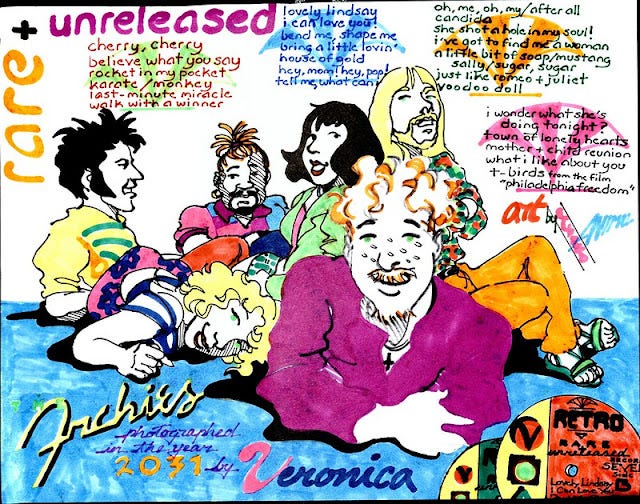 rare + unreleased
cherry, cherry
believe what you say
rocket in my pocket
karate/monkey
last-minute miracle
walk with a winner
lovely lindsay
i can love you!
bend me, shape me
bring a little lovin'
house of gold
hey, mom! hey, pop!
tell me, what can i
oh, me, oh, my/after all
candida
she shot a hole in my soul!
i've got to find me a woman
a little bit of soap/mustang
sally/sugar, sugar
just like romeo + juliet
voodoo doll
i wonder what she's
doing tonight?
town of lonely hearts
mother + child reunion
what i like about you
t-birds from the film
"philadelphia freedom"
art by
THE
Archies
photographed
in the year
2031 by
Veronica
RETRO
RARE
unreleased
RECOR
SEVE
Side
B
Lovely Lindsay
I Can Love You